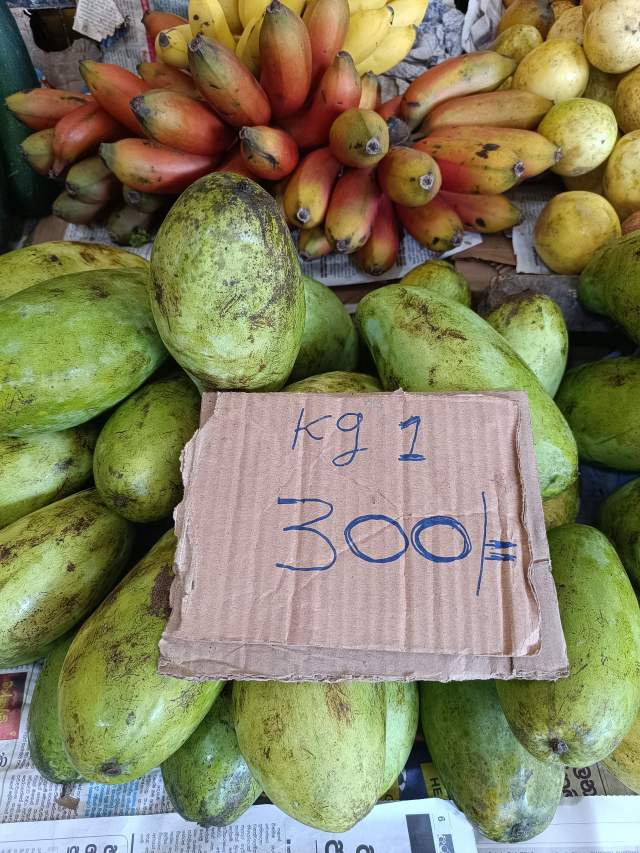 Kg 1
300/=